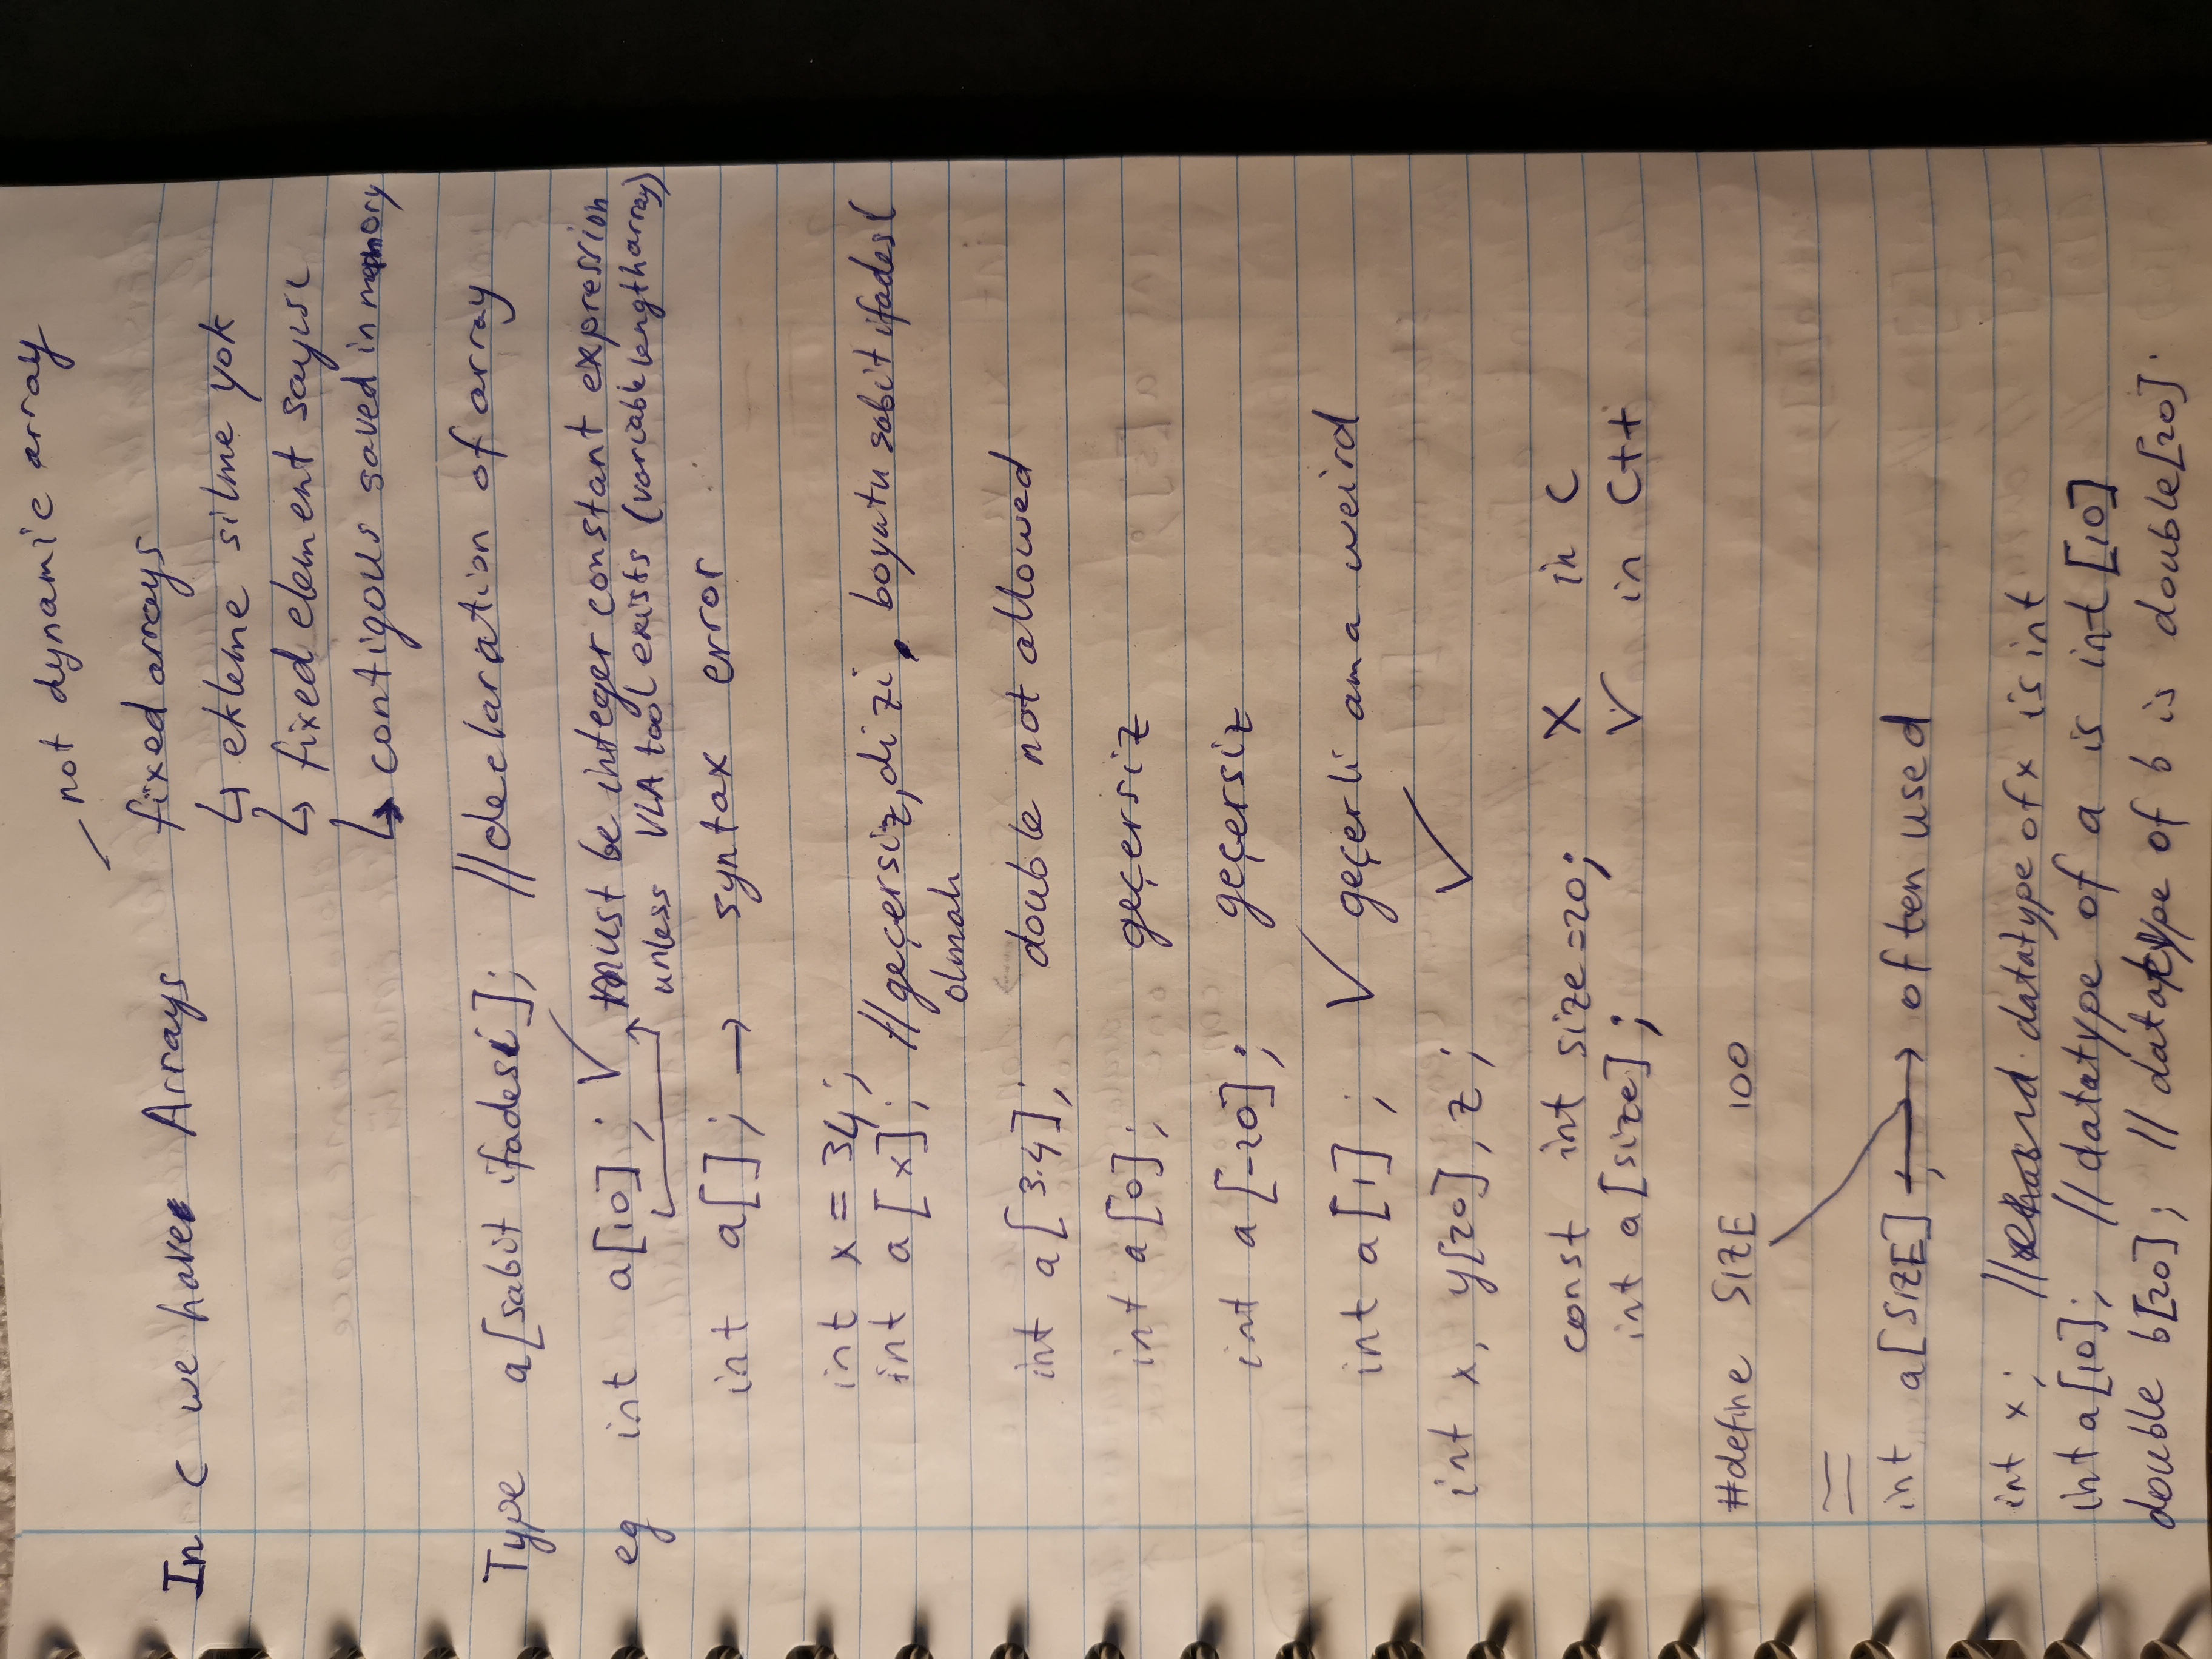 not dynamic array
In C we have Arrays fixed arrays
↳ ekleme silme yok
↳ fixed element sayısı
↳ contigous saved in memory
Type a[sabit ifadesi]; //declaration of array
eg int a[10]; ✓ must be integer constant expression
unless VLA tool exists (variable length array)
int a[]; → syntax error
int x = 34;
int a[x]; //geçersiz, dizi, boyutu sabit ifadesi
olmalı
int a[3.4]; double not allowed
int a[0]; geçersiz
int a[-20]; geçersiz
int a[1]; ✓ geçerli ama weird
int x, y[20], z; ✓
const int size=20; X in C
int a[size]; ✓ in C++
#define SIZE 100
=
int a[SIZE]; → often used
int x; // datatype of x is int
int a[10]; //datatype of a is int [10]
double b[20]; //datatype of b is double[20].